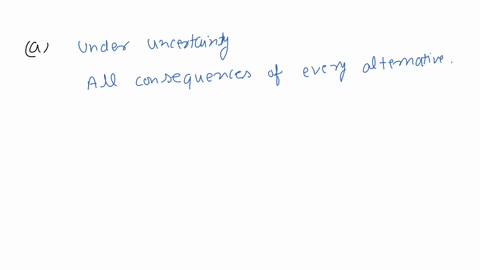 (a) Under uncertainty
All consequences of every alternative.